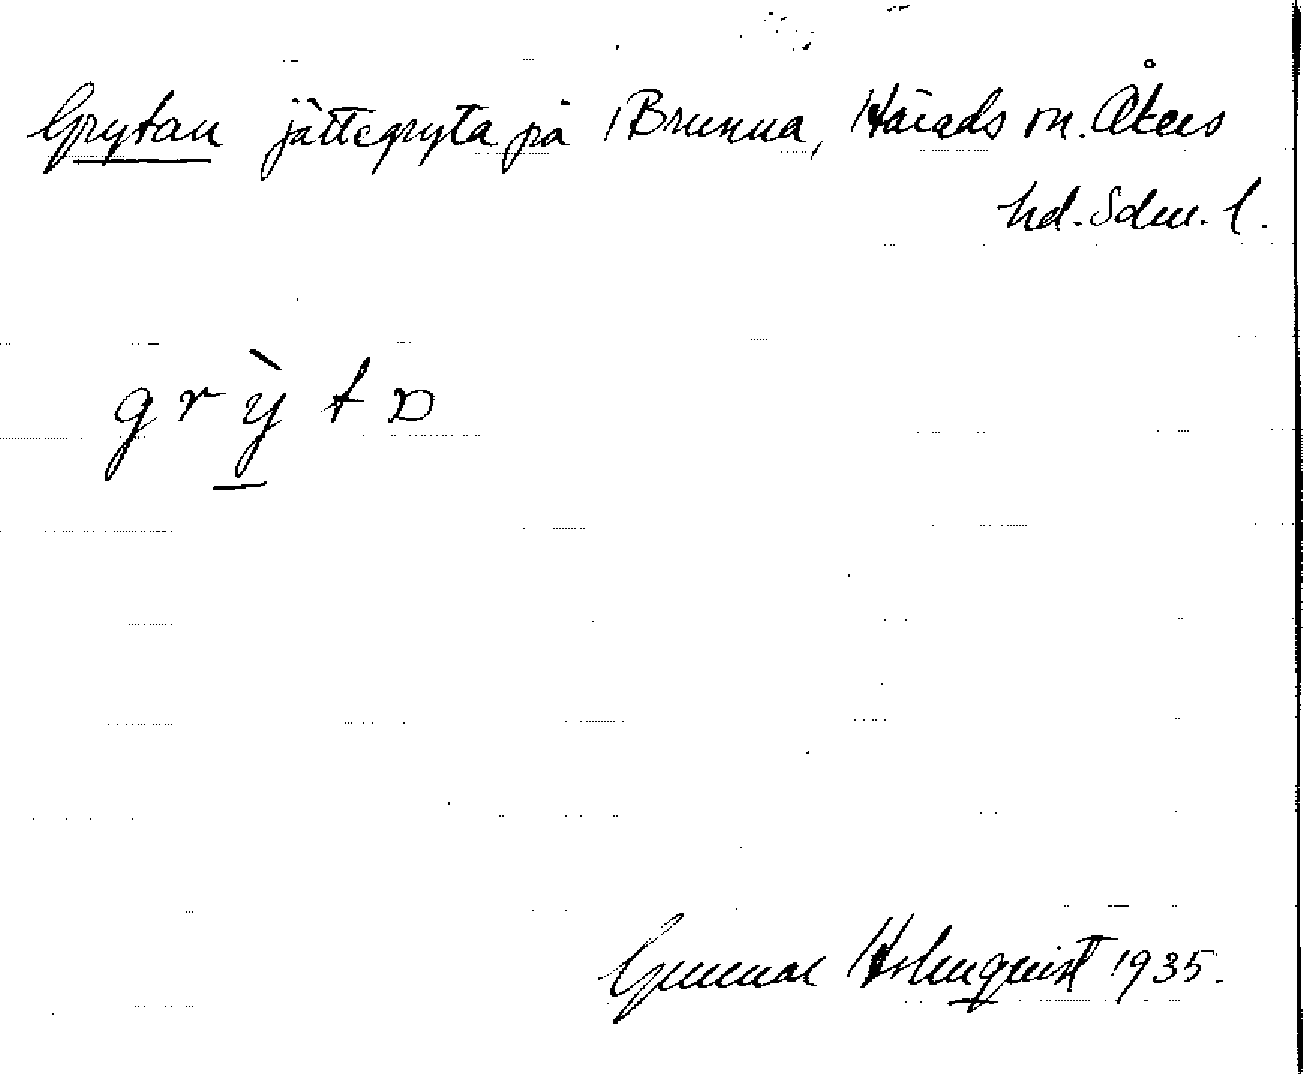 Grytan jättegryta på Brunna, Härads sn. Åkers
hd. Sdm. l.
grỳtɒ
Gunnar Holmquist 1935.